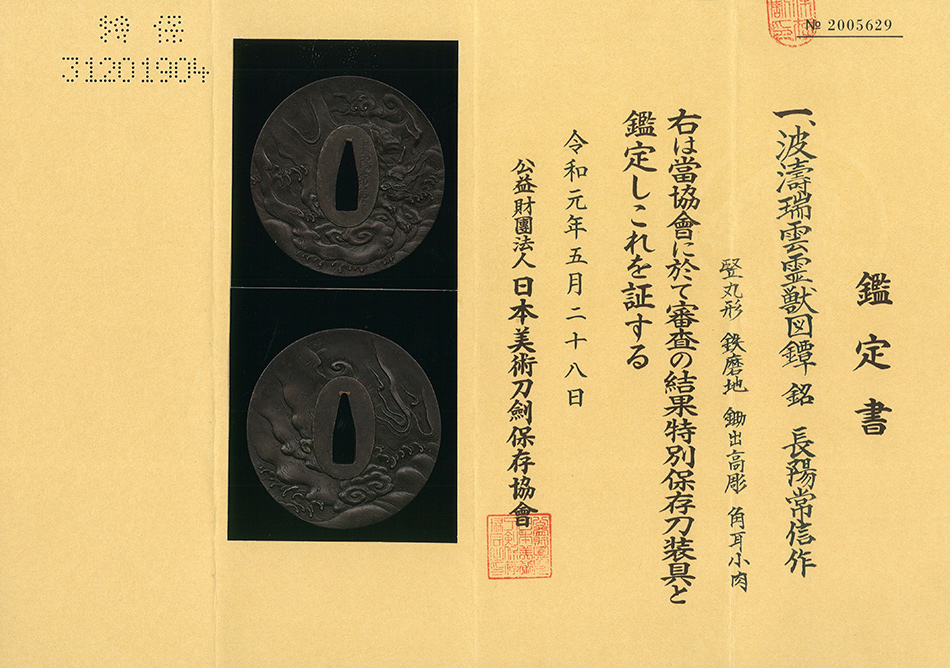 № 2005629
鑑定書
一、波濤瑞雲霊獣図鐔 銘 長陽常信作
竪丸形 鉄磨地 鋤出高彫 角耳小肉
右は當協會に於て審査の結果特別保存刀装具と
鑑定しこれを証する
令和元年五月二十八日
公益財團法人日本美術刀劍保存協會
特保
31201904